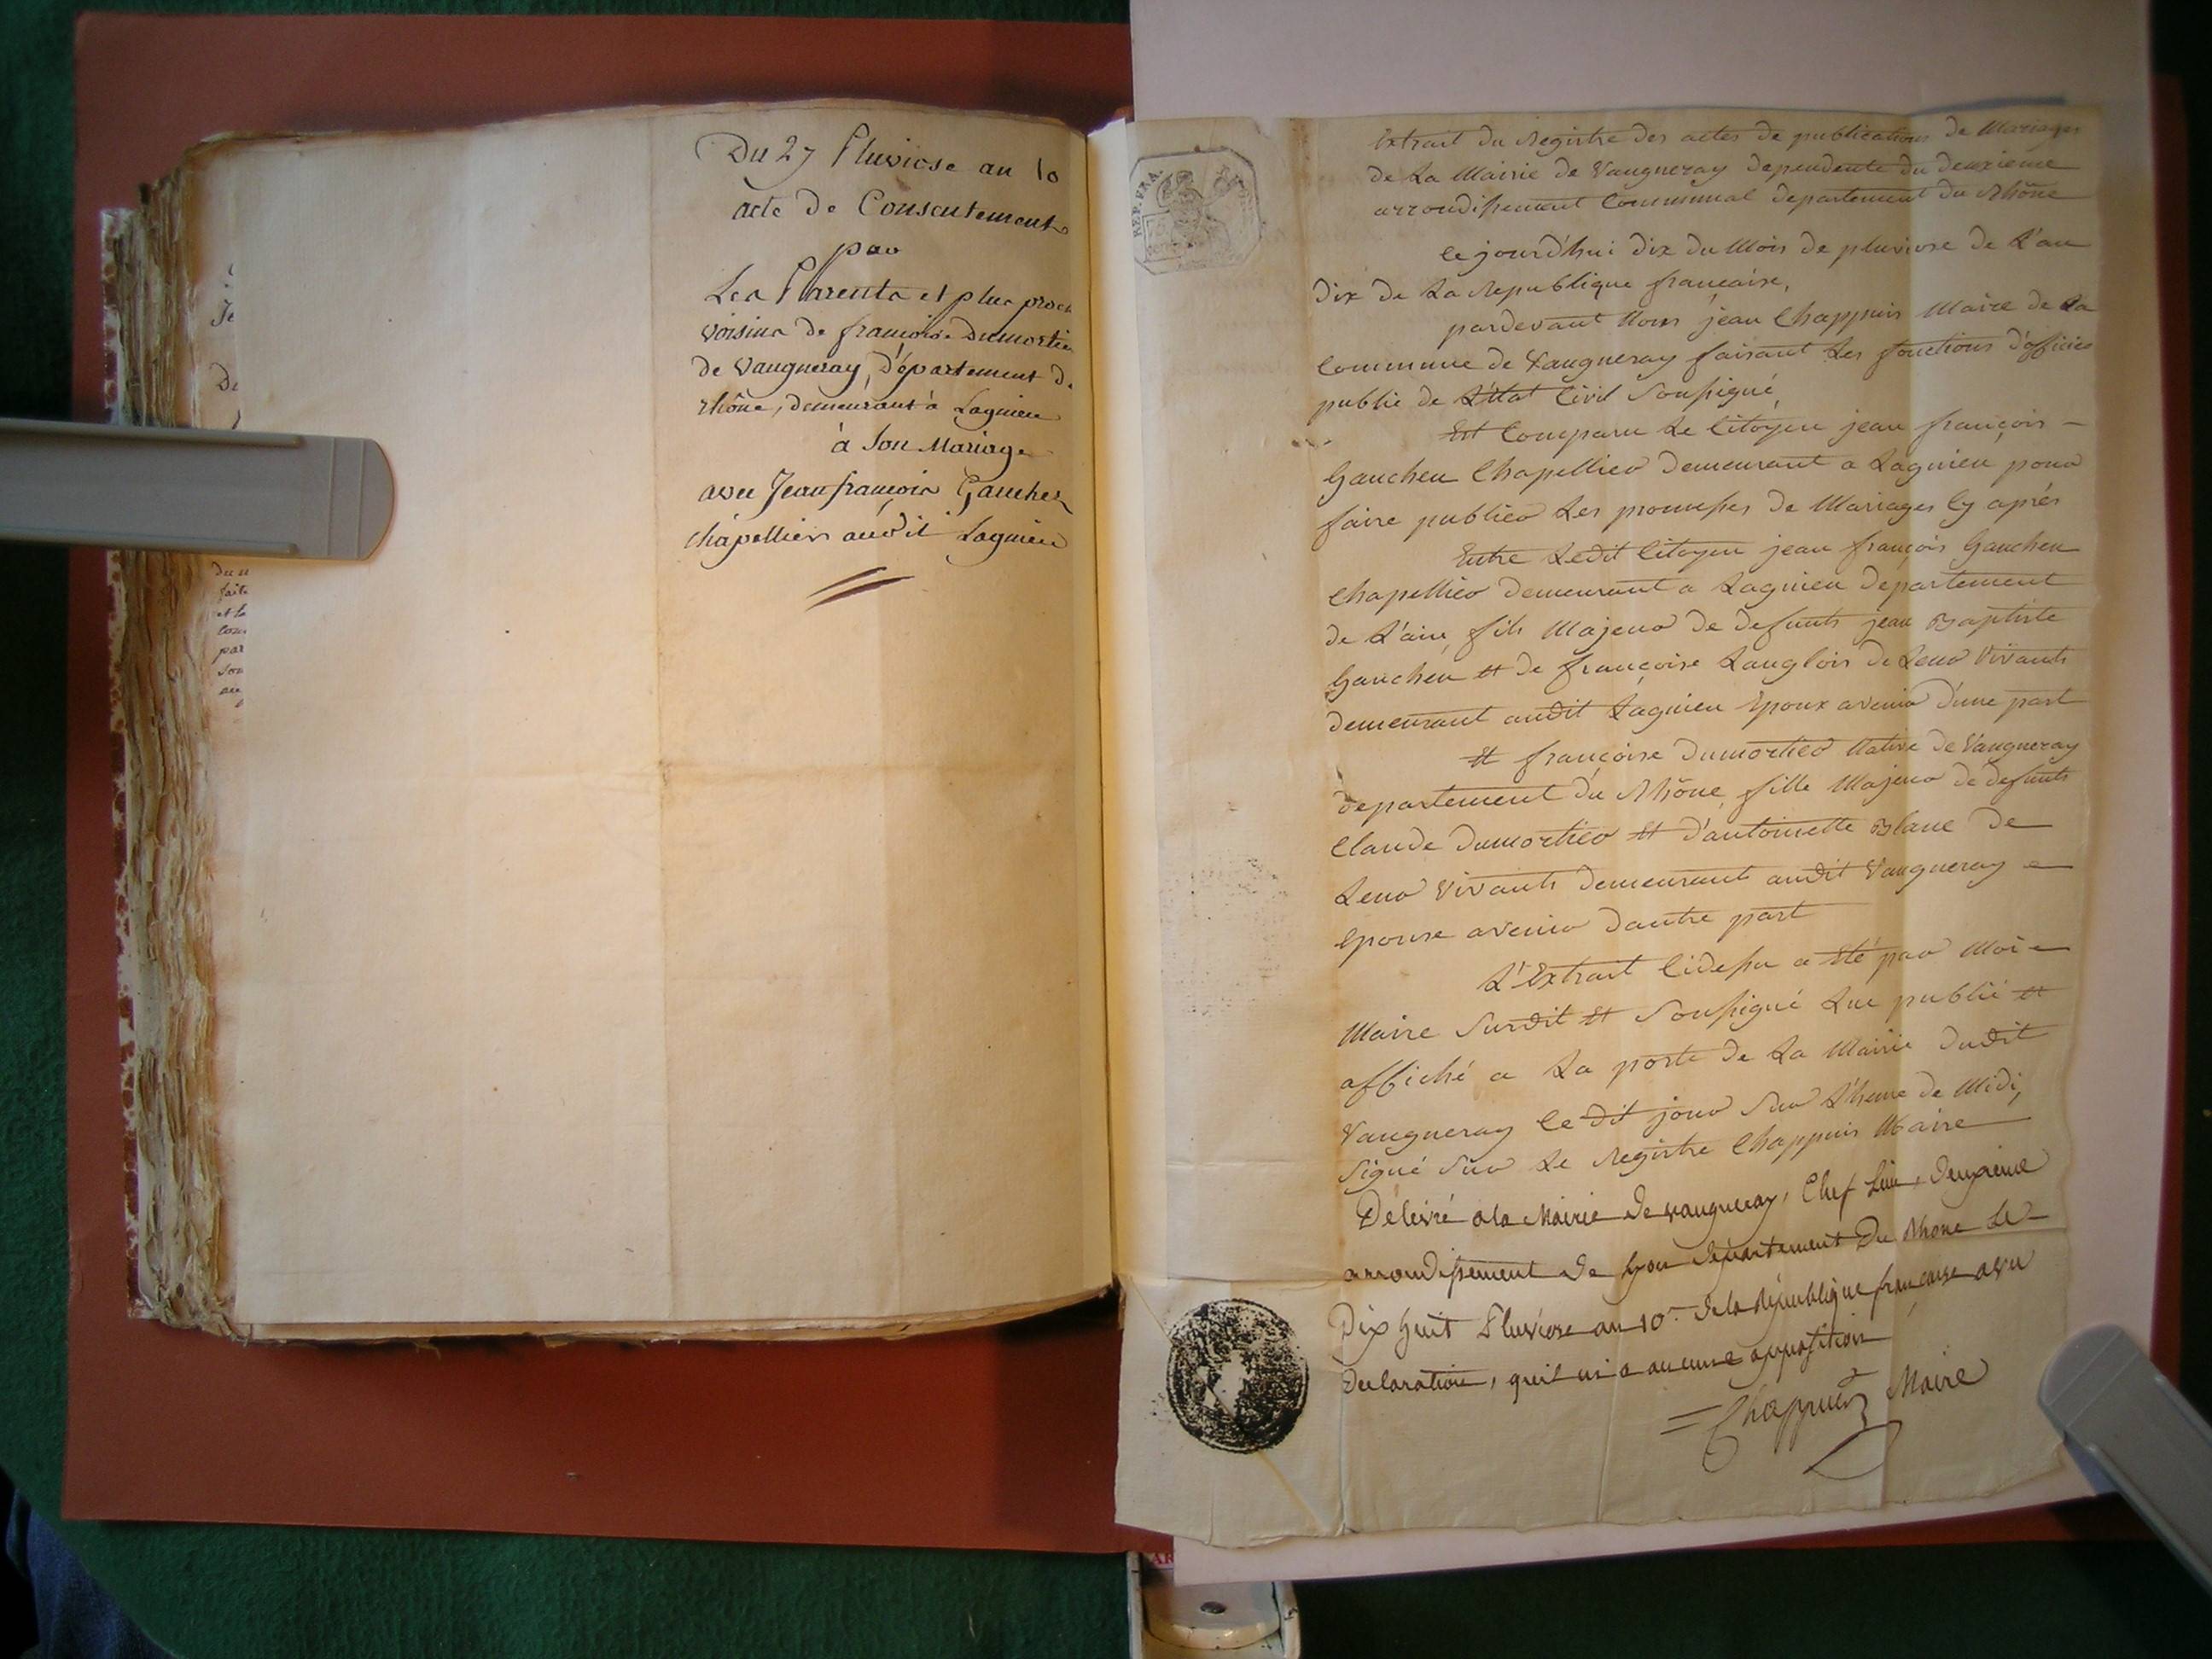 Du 27 Pluviose au 10
acte de Consentement
par
Les Parents et plus proch
voisins de francoise Dumortier
de Vaugneray, Département d
rhône, demeurant à Lagnieu
à Son Mariage
avec Jean françois Gaucher
chapellier audit Lagnieu
Je
De
du
faite
et le
par
son
au
REP. FRA.
Extrait du Registre des actes de publications de Mariages
de La Mairie de Vaugneray dependente du deuxieme
arrondissement Communal departement du Rhône
Ce jourd'hui dix du Mois de pluviose de L'an
dix de La Republique francaise,
pardevant Nous jean Chappuis Maire de La
Commune de Vaugneray faisant Les fonctions d'officier
public de L'Etat Civil Soussigné,
Est Comparu Le Citoyen jean françois -
Gaucheu Chapellier demeurant a Lagnieu pour
faire publier Les promesses de Mariages Cy aprés
Entre Ledit Citoyen jean françois Gaucheu
Chapellier demeurant a Lagnieu departement
de L'ain, fils Majeur de defunts jean Baptiste
Gaucheu et de françoise Langlois de Leur Vivants
demeurant audit Lagnieu Epoux avenir d'une part
Et françoise Dumortier Native de Vaugneray
departement du Rhône, fille Majeur de defunts
Claude Dumortier Et d'antoinette Blanc de
Leur Vivants demeurants audit Vaugneray
Epouse avenir dautre part
L'Extrait Cidessu a été par Moi
Maire Susdit Et Soussigné Lue publié et
affiché a La porte de La Mairie dudit
Vaugneray Ce dit jour Sur L'heure de Midi,
Signé Sur Le Registre Chappuis Maire
Délivré ala Mairie de vaugneray, Chef Lieu, deuxieme
arrondissement de Lyon département Du Rhone Le
Dix huit Pluviose an 10e. De la République francaise avec
Declaration, quil ni a aucune opposition
= Chappuis Maire